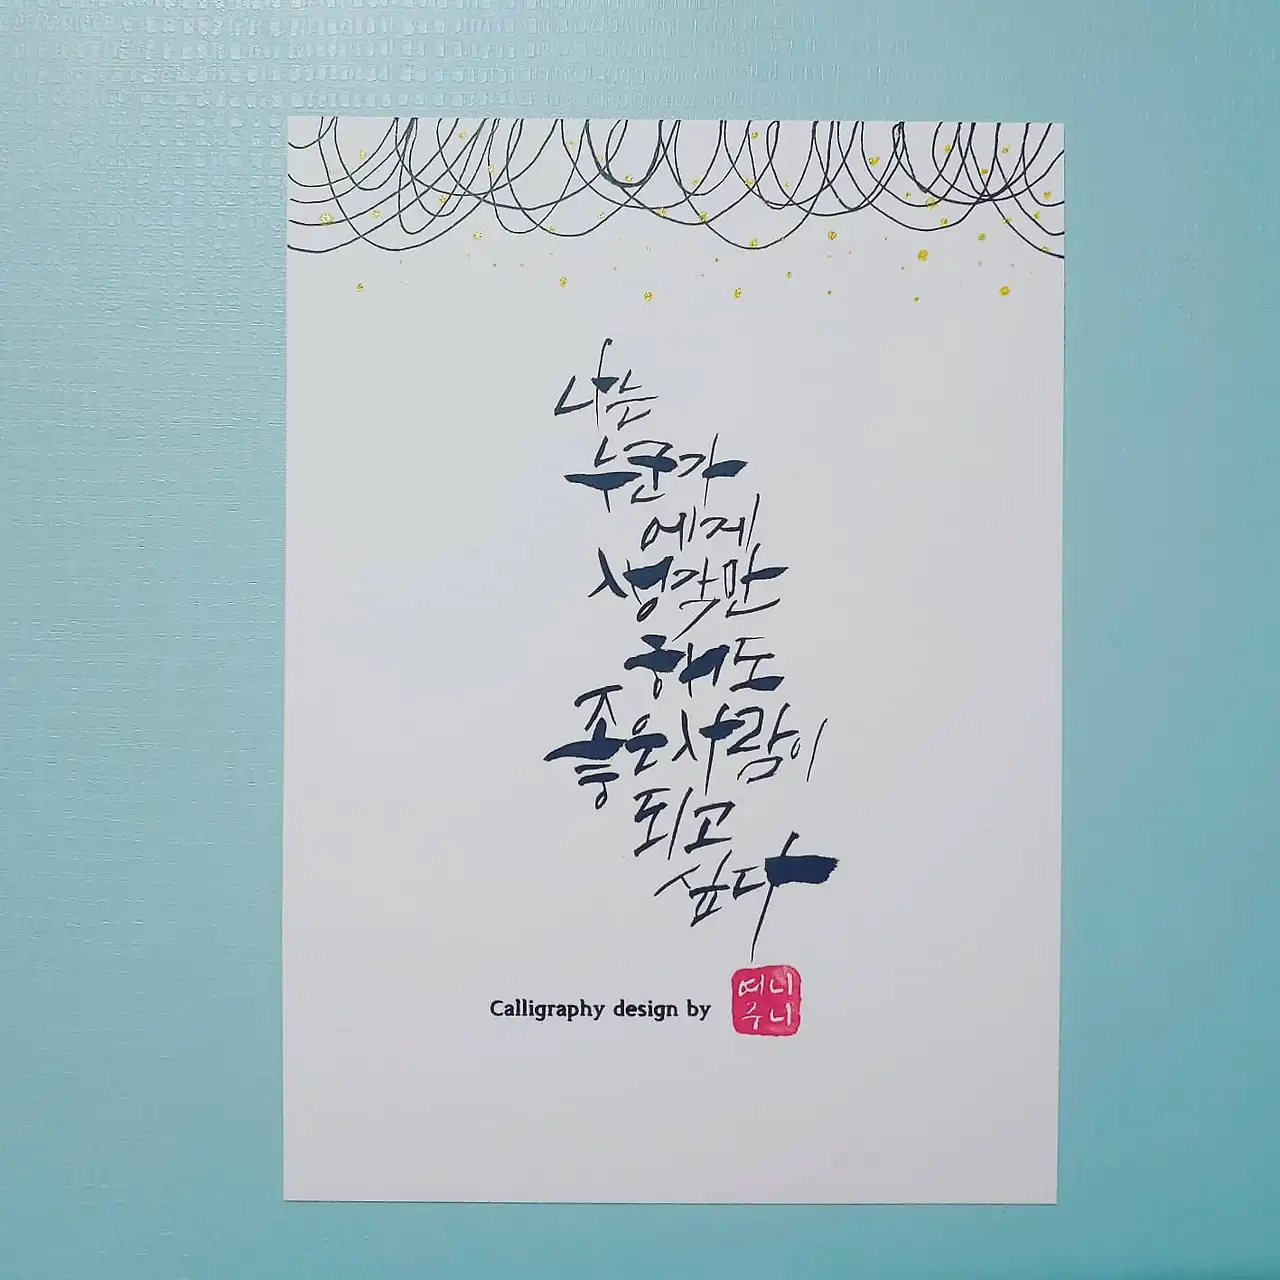 나는
누군가
에게
생각만
해도
좋은 사람이
되고
싶다
Calligraphy design by
여니
주니